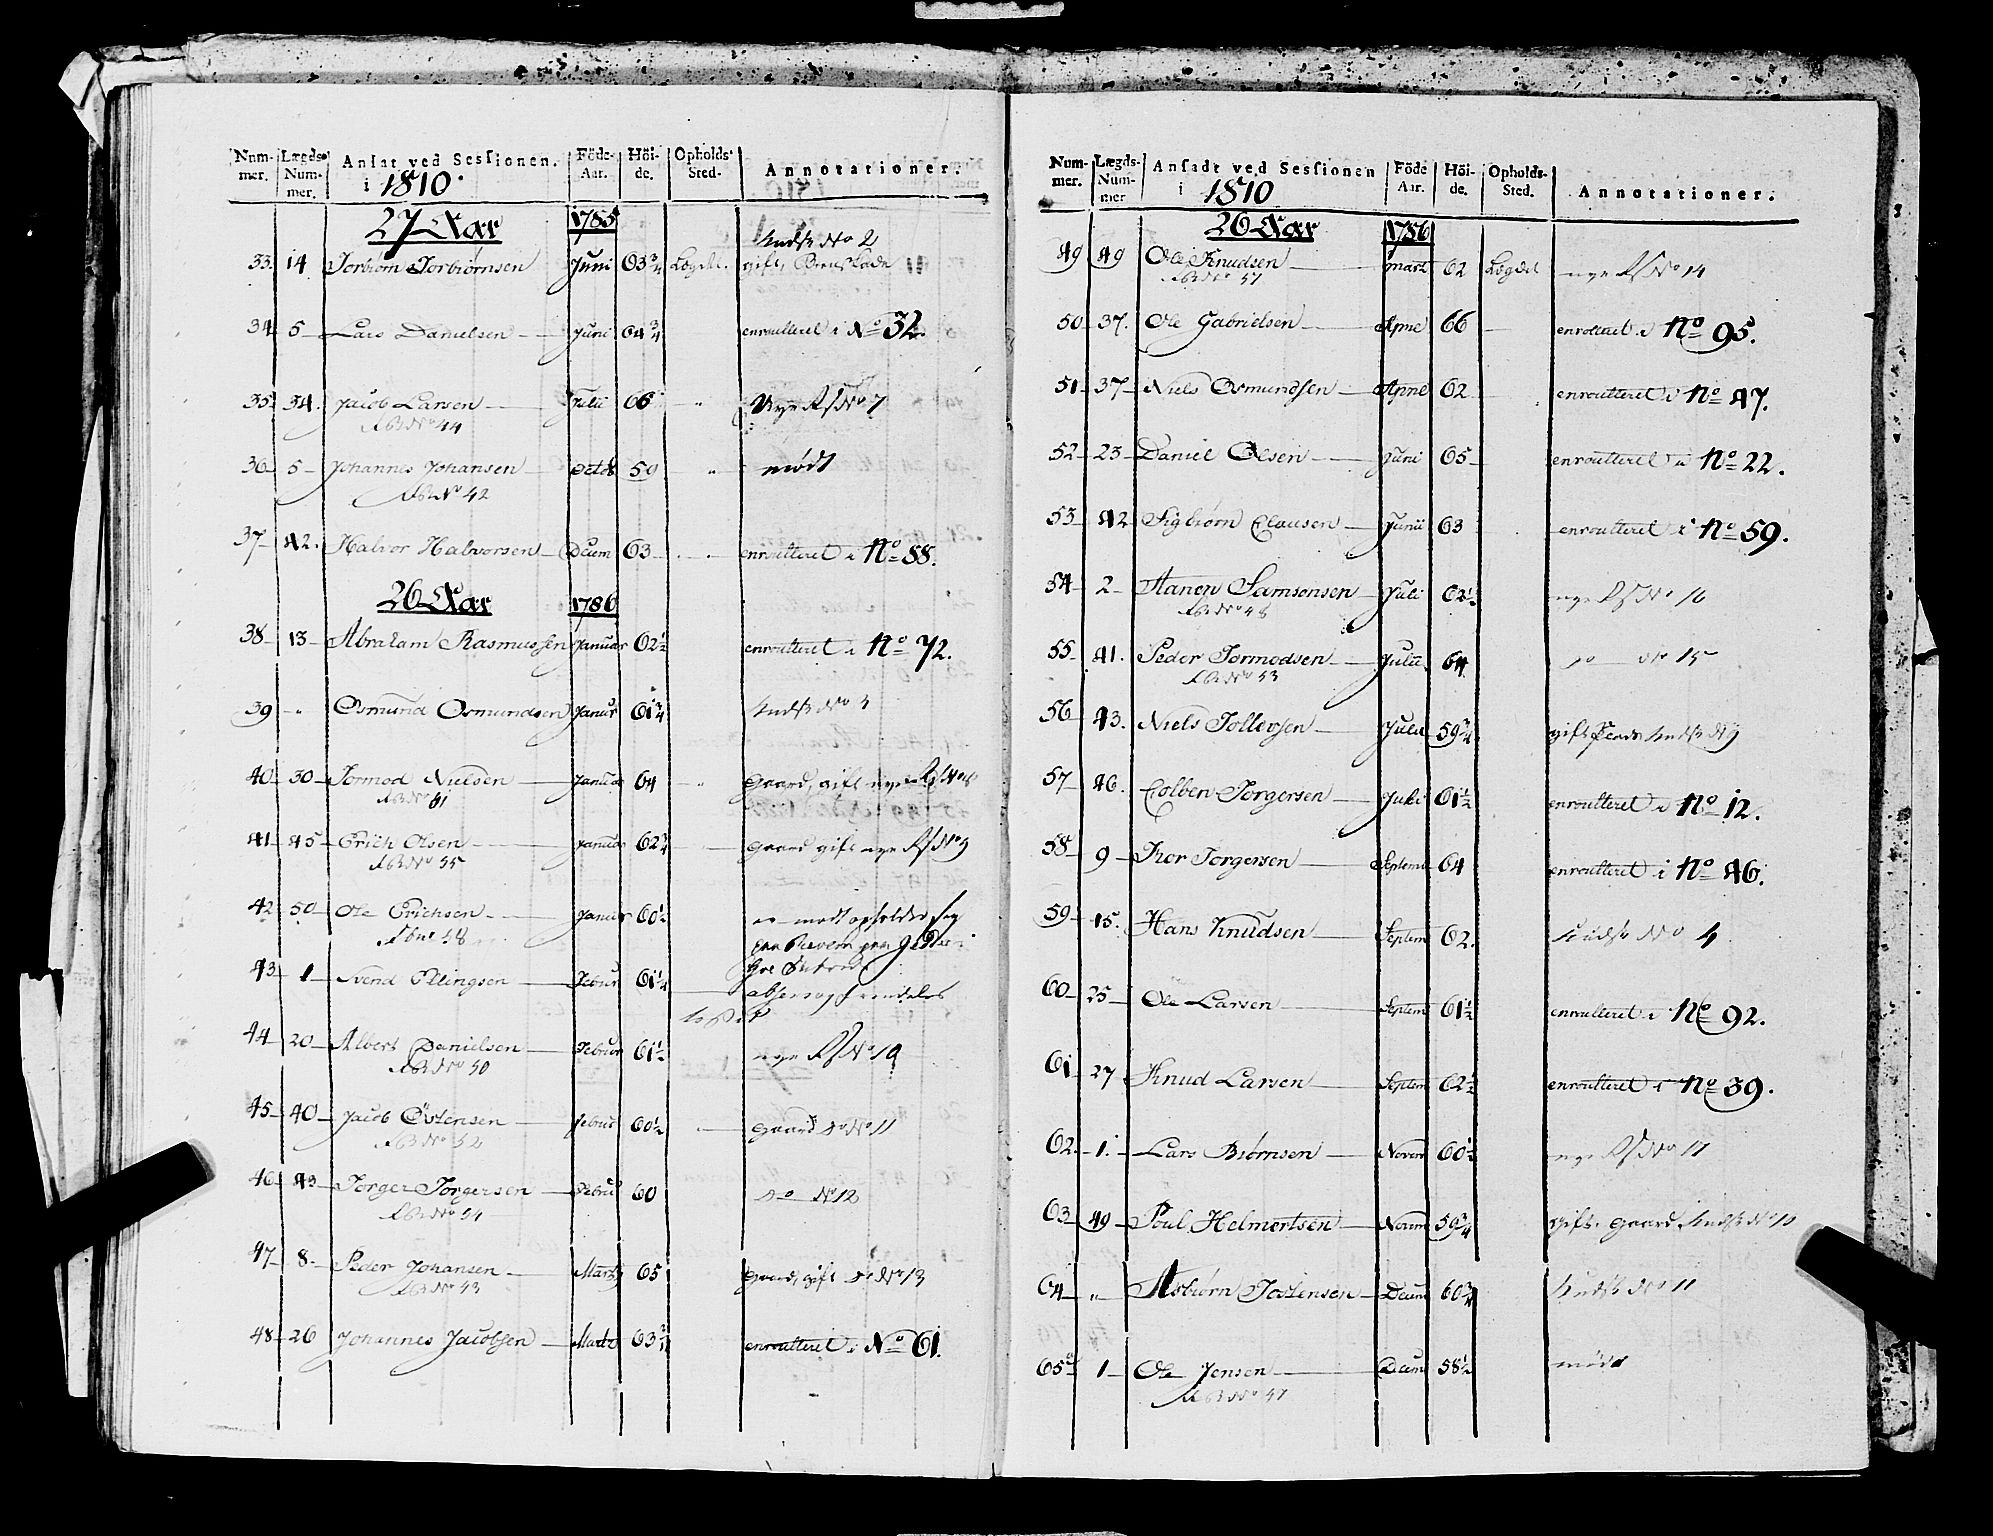 Num-mer. Lægds-Num-mer. Ansat ved Sessionen. i 1810. Föde-Aar. Höi-de. Opholds-Sted. Annotationer.
27 Aar 1785
Indst No 2
33. 14 Torbiørn Torbiørnsen Juni 63 3/4 Lægdet. gift
34 5 Lars Danielsen Juni 64 3/4 enroulleret i No 32.
35 34. Jacob Larsen Julii 66 " Nye No 7
No 44
36 5 Johannes Johansen Octob 59 " mødt
No 42
37 42. Halvor Halvorsen Decem 63 " enroulleret i No 88.
26 Aar 1786
38 13 Abraham Rasmussen Januar 62 1/2 enroulleret i No 72.
39 " Osmund Osmundsen Janur 61 3/4 Indst No 3
40 30 Tormod Nielsen Januar 64 " gaard, gift nye
41 45 Erich Olsen Januar 62 3/4 gaard gift nye No 9
No 55
42 50 Ole Erichsen Januar 60 1/2 mødt opholder sig
43 1 Svend Ellingsen Febur 61 1/4
44 20 Albert Danielsen Februr 61 1/2 nye No 10
No 50
45 40 Jacob Östensen Februr 60 1/2 gaard do No 11
No 52
46 43 Torger Torgersen Februr 60 do No 12
No 54
47 8 Peder Johansen Martz 65 gaard, gift do No 13
No 43
48 26 Johannes Jacobsen Martz 63 enroulleret i No 61.
Num-mer. Lægds-Num-mer Ansadt ved Sessionen i 1810 Föde Aar. Höi-de. Opholds-Sted. Annotationer.
26 Aar 1786
49 49 Ole Knudsen Mart 62 Lægdet nye No 14
No 57
50 37. Ole Gabrielsen Aprel 66 enroulleret i No 95.
51 37 Niels Osmundsen Aprel 62 enroulleret i No 47.
52 23 Daniel Olsen Juni 65 enroulleret i No 22.
53 42 Sigbiørn Clausen Junii 63 enroulleret i No 59.
54 2 Aanen Samsonsen Juli 62 1/2 nye No 16
No 48
55 41. Peder Tormodsen Julii 64 do No 15
No 53
56 43. Niels Tollevsen Julii 59 3/4 gift Indst No 9
57 46. Colben Torgersen Juli 61 1/2 enroulleret i No 12.
58 9 Thor Torgersen Septemb 64 enroulleret i No 46.
59 15. Hans Knudsen Septem 62. Indst No 4
60 25 Ole Larsen Septem 61 1/2 enroulleret i No 92.
61 27 Knud Larsen Septem 62 1/2 enroulleret i No 39.
62 1. Lars Biørnsen Novem 60 1/2 nye No 17
63 49 Poul Helmertsen Novem 59 3/4 gift. gaard Indst No 10
64 " Asbiørn Tostensen Decem 60 3/4 Indst No 11
65 1 Ole Jensen Decem 58 1/2 mødt
No 47